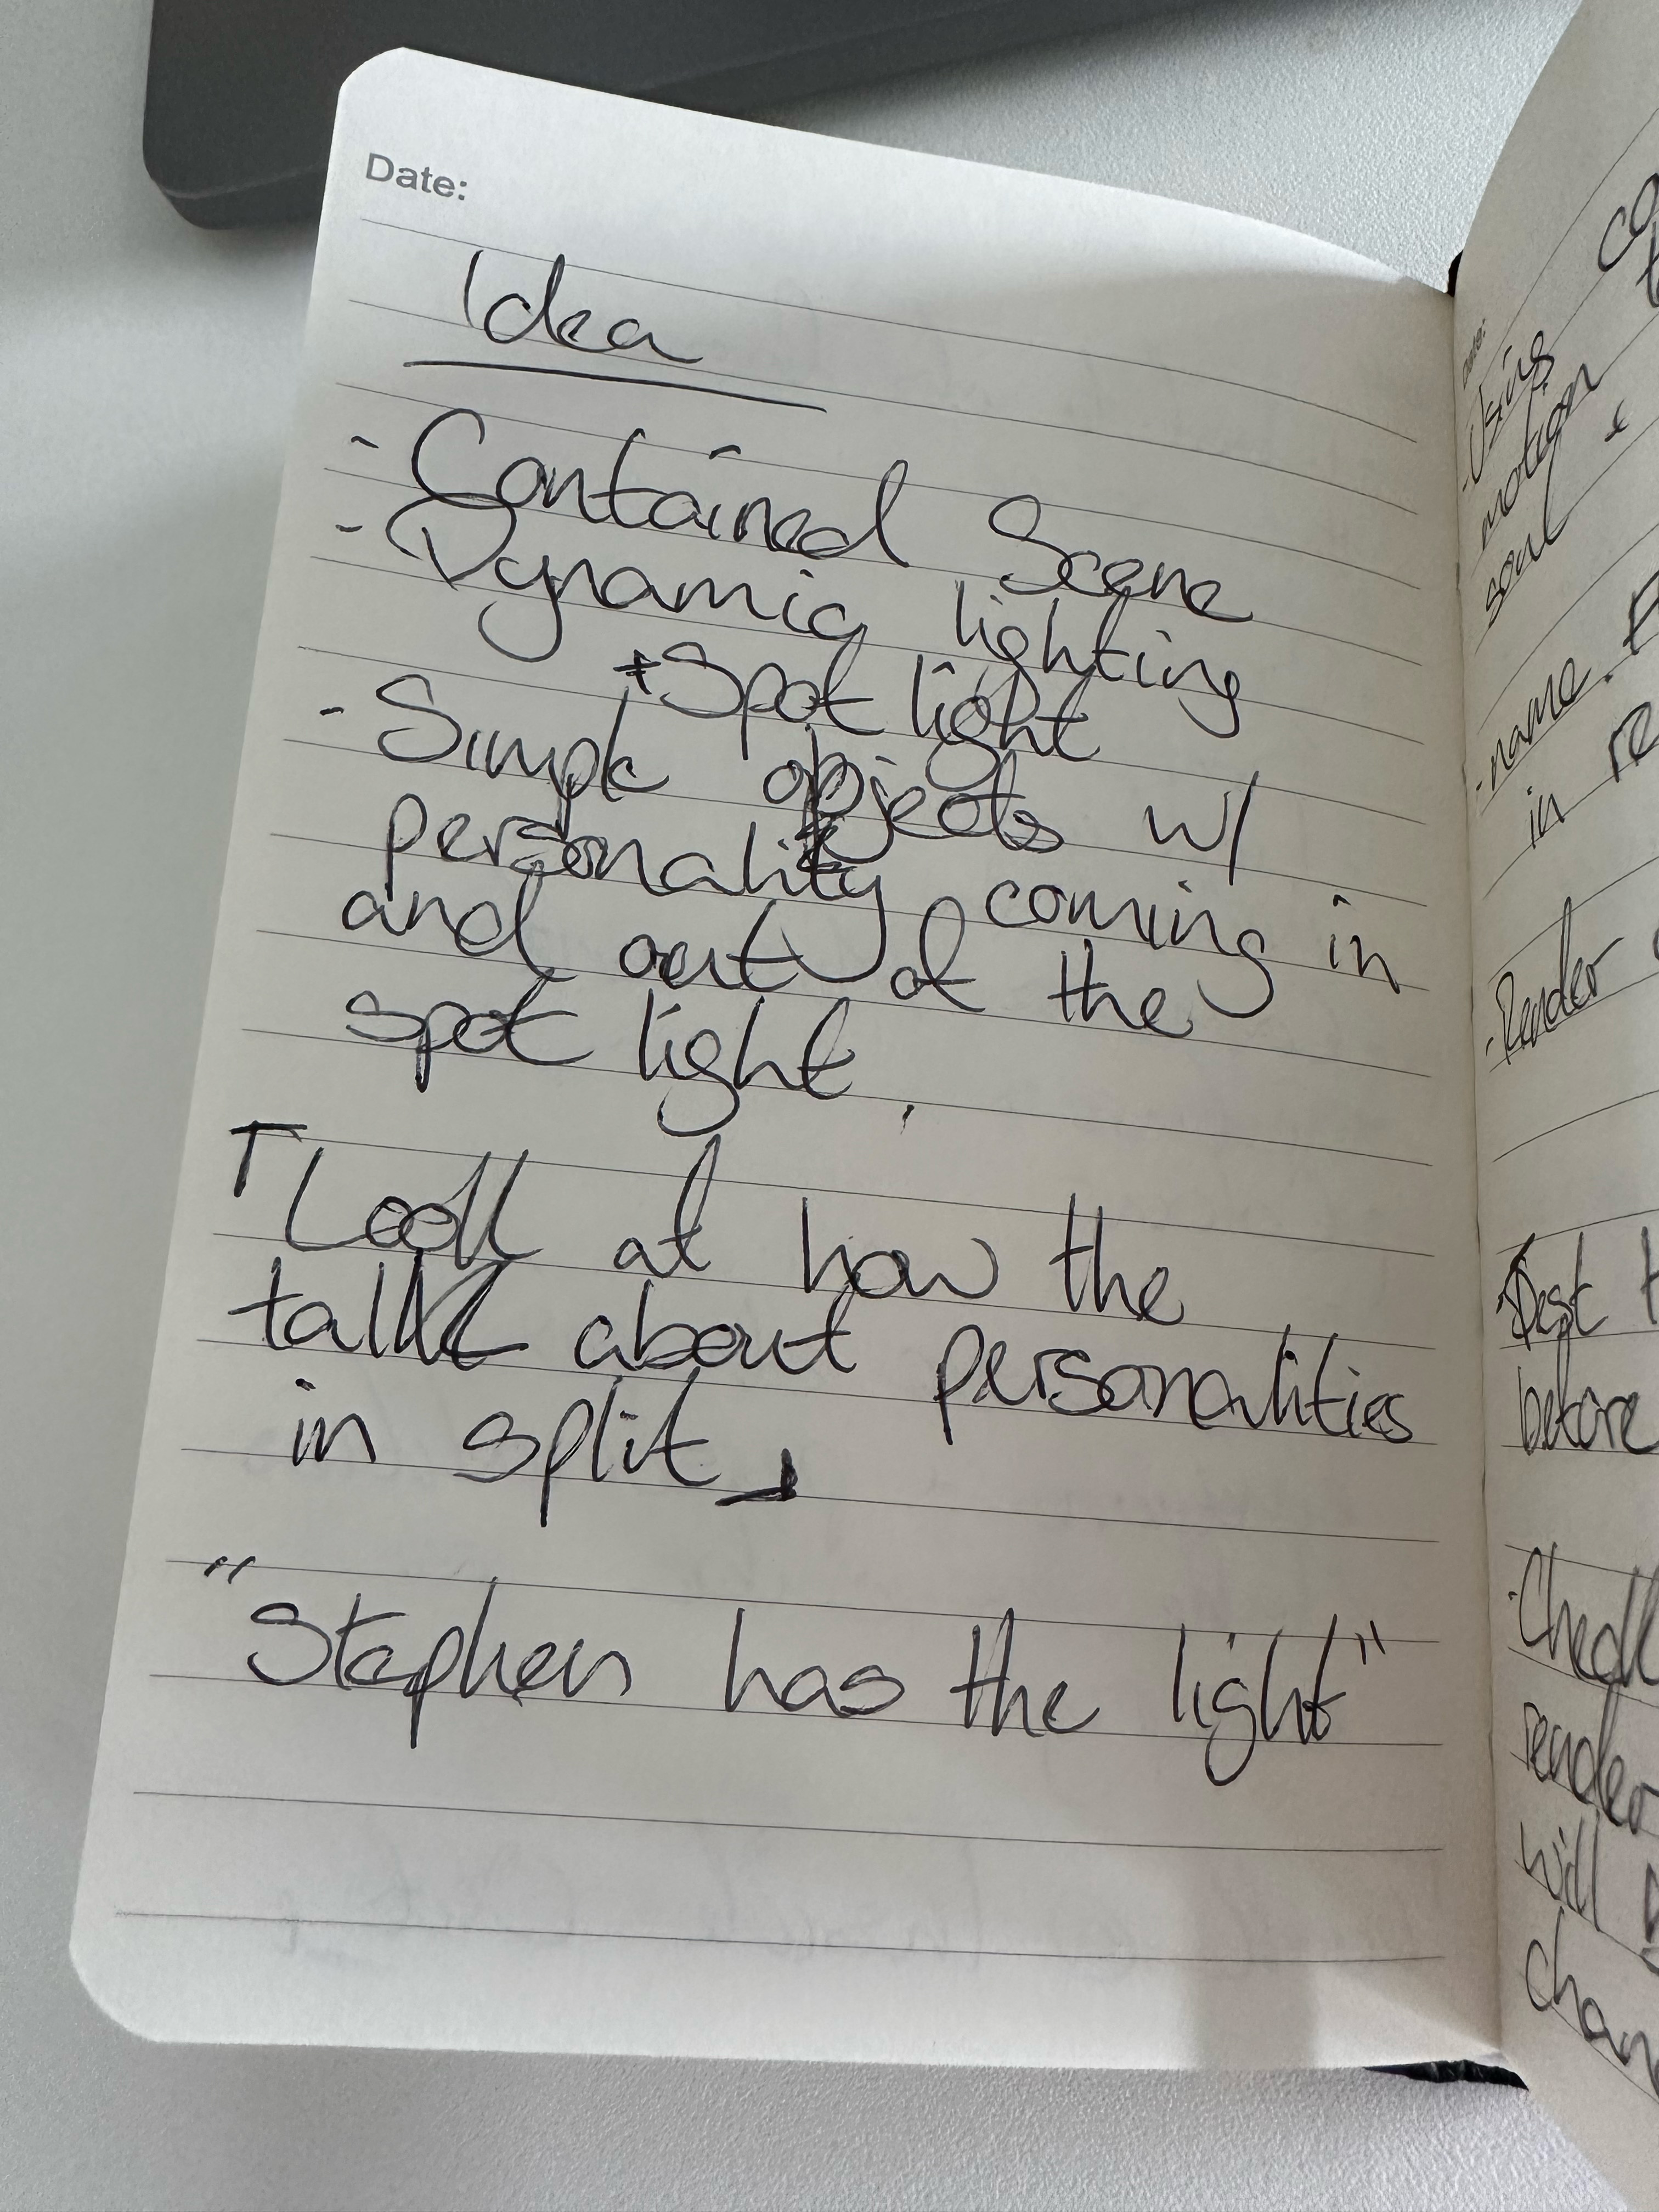 Date:
Idea
- Contained Scene
- Dynamic lighting
+ Spot light
- Simple objects w/
personality coming in
and out of the
spot light.
「Look at how the
talk about personalities
in split」
"Stephen has the light"
Date:
- Using
motion
soul
- name.
in re
- Render
- Test t
before
- Check
render
will
chan